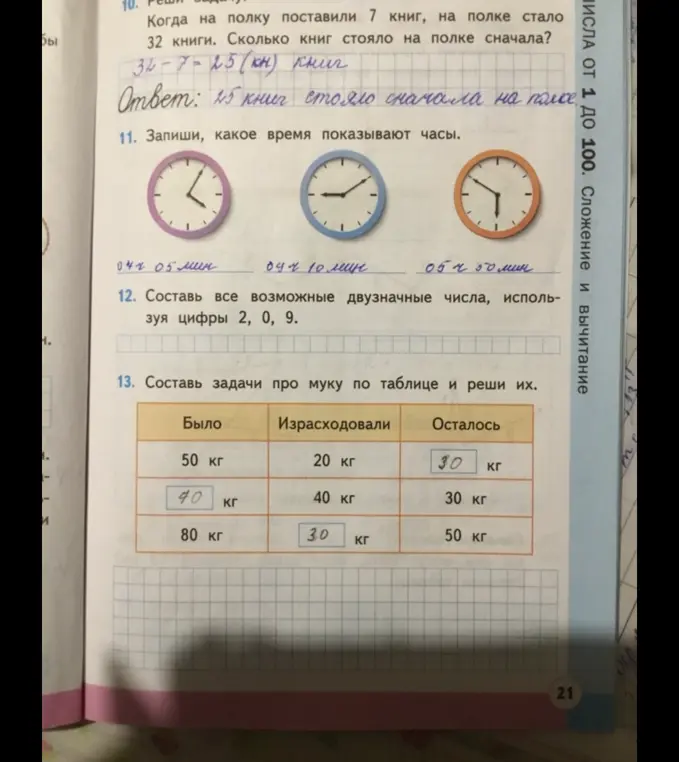 10. Реши задачу.
Когда на полку поставили 7 книг, на полке стало
32 книги. Сколько книг стояло на полке сначала?
32 - 7 = 25 (кн) книг
Ответ: 25 книг стояло сначала на полке
11. Запиши, какое время показывают часы.
04 ч 05 мин 09 ч 10 мин 05 ч 50 мин
12. Составь все возможные двузначные числа, исполь-
зуя цифры 2, 0, 9.
13. Составь задачи про муку по таблице и реши их.
Было Израсходовали Осталось
50 кг 20 кг 30 кг
70 кг 40 кг 30 кг
80 кг 30 кг 50 кг
21
ЧИСЛА ОТ 1 ДО 100. Сложение и вычитание